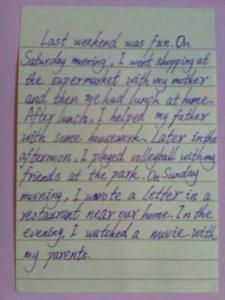 Last weekend was fun. On
Saturday morning, I went shopping at
the supermarket with my mother
and then had lunch at home.
After lunch, I helped my father
with some housework. Later in the
afternoon, I played volleyball with my
friends at the park. On Sunday
morning, I wrote a letter in a
restaurant near our home. In the
evening, I watched a movie with
my parents.